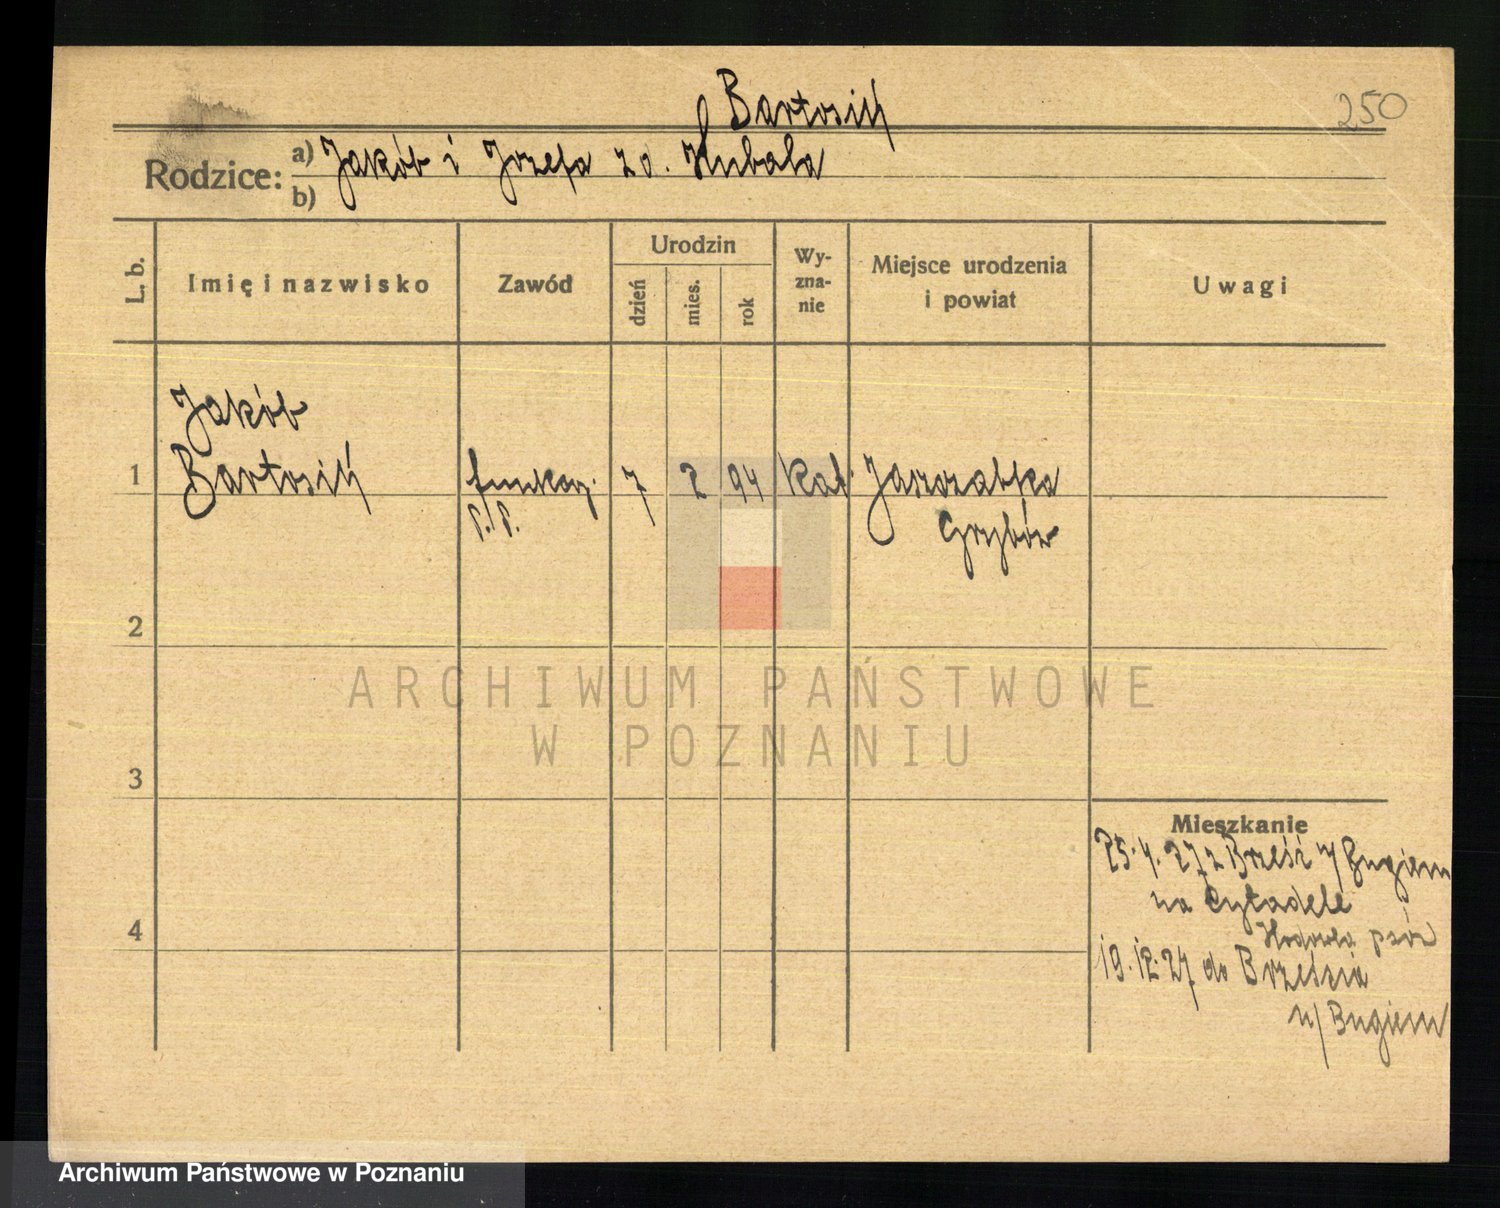 250
Bartosik
Rodzice: a) Jakób i Józefa zd. Kubala
b)
L. b. Imię i nazwisko Zawód Urodzin dzień mies. rok Wyznanie Miejsce urodzenia i powiat Uwagi
Jakób
1 Bartosik funkcj. 7 2 94 Kat. Jaszczabka
P.P. Grybów
2
ARCHIWUM PAŃSTWOWE
W POZNANIU
3
Mieszkanie
25.4.27 z Brześć n/Bugiem
na Cytadele
4 Hodowla psów
19.12.27 do Brześcia
n/Bugiem
Archiwum Państwowe w Poznaniu